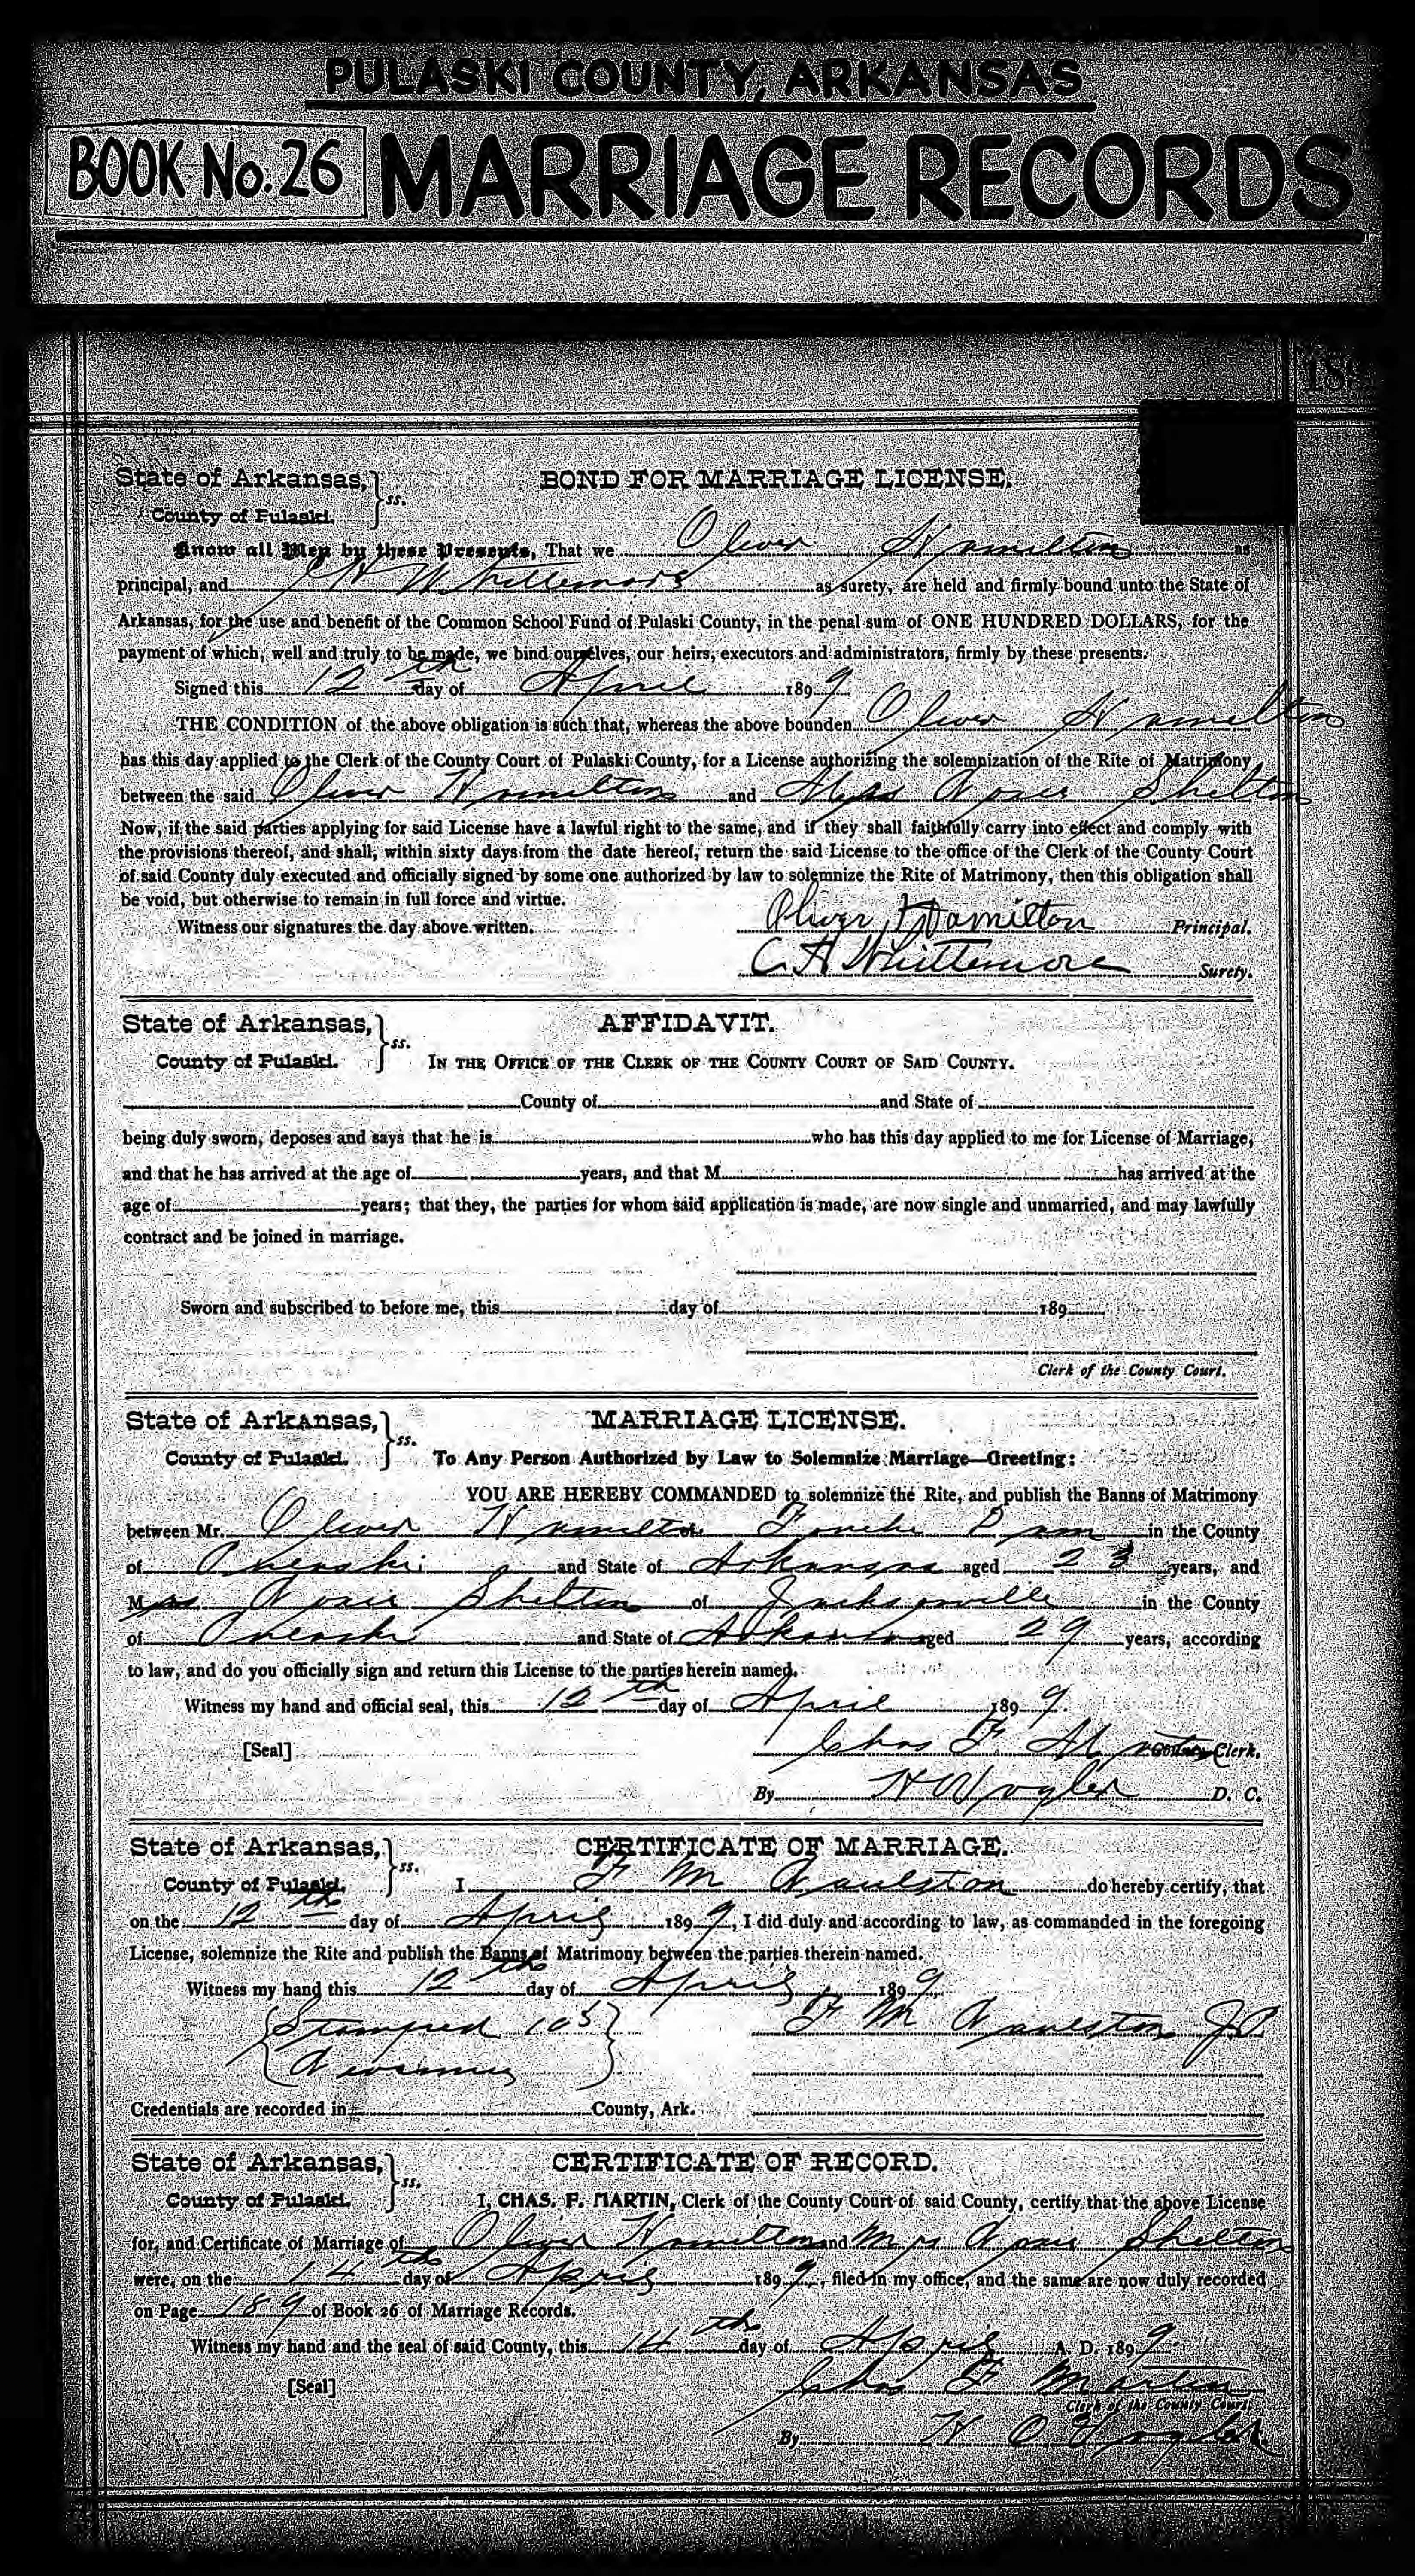 PULASKI COUNTY, ARKANSAS
BOOK No. 26 MARRIAGE RECORDS
189
State of Arkansas, ss. BOND FOR MARRIAGE LICENSE.
County of Pulaski.
Know all Men by these Presents, That we Oliver Hamilton as
principal, and C H Whittemore as surety, are held and firmly bound unto the State of
Arkansas, for the use and benefit of the Common School Fund of Pulaski County, in the penal sum of ONE HUNDRED DOLLARS, for the
payment of which, well and truly to be made, we bind ourselves, our heirs, executors and administrators, firmly by these presents.
Signed this 12th day of April 1899
THE CONDITION of the above obligation is such that, whereas the above bounden Oliver Hamilton
has this day applied to the Clerk of the County Court of Pulaski County, for a License authorizing the solemnization of the Rite of Matrimony
between the said Oliver Hamilton and Mrs Shelton
Now, if the said parties applying for said License have a lawful right to the same, and if they shall faithfully carry into effect and comply with
the provisions thereof, and shall, within sixty days from the date hereof, return the said License to the office of the Clerk of the County Court
of said County duly executed and officially signed by some one authorized by law to solemnize the Rite of Matrimony, then this obligation shall
be void, but otherwise to remain in full force and virtue.
Witness our signatures the day above written.
Oliver Hamilton Principal.
C H Whittemore Surety.
State of Arkansas, ss. AFFIDAVIT.
County of Pulaski. IN THE OFFICE OF THE CLERK OF THE COUNTY COURT OF SAID COUNTY.
County of and State of
being duly sworn, deposes and says that he is who has this day applied to me for License of Marriage,
and that he has arrived at the age of years, and that M has arrived at the
age of years; that they, the parties for whom said application is made, are now single and unmarried, and may lawfully
contract and be joined in marriage.
Sworn and subscribed to before me, this day of 189
Clerk of the County Court.
State of Arkansas, ss. MARRIAGE LICENSE.
County of Pulaski. To Any Person Authorized by Law to Solemnize Marriage—Greeting:
YOU ARE HEREBY COMMANDED to solemnize the Rite, and publish the Banns of Matrimony
between Mr. Oliver Hamilton of Fourche Dam in the County
of Pulaski and State of Arkansas aged 23 years, and
Mrs Shelton of Jacksonville in the County
of Pulaski and State of Arkansas aged 29 years, according
to law, and do you officially sign and return this License to the parties herein named.
Witness my hand and official seal, this 12th day of April 1899.
[Seal] Chas F Martin County Clerk.
By H O Vogler D. C.
State of Arkansas, ss. CERTIFICATE OF MARRIAGE.
County of Pulaski. I F M Raulston do hereby certify, that
on the 12th day of April 1899, I did duly and according to law, as commanded in the foregoing
License, solemnize the Rite and publish the Banns of Matrimony between the parties therein named.
Witness my hand this 12th day of April 1899
Stamped F M Raulston JP
Revenue
Credentials are recorded in County, Ark.
State of Arkansas, ss. CERTIFICATE OF RECORD.
County of Pulaski. I, CHAS. F. MARTIN, Clerk of the County Court of said County, certify that the above License
for, and Certificate of Marriage of Oliver Hamilton and Mrs Shelton
were, on the 14th day of April 1899, filed in my office, and the same are now duly recorded
on Page 189 of Book 26 of Marriage Records.
Witness my hand and the seal of said County, this 14th day of April A. D. 1899
[Seal] Chas F Martin
Clerk of the County Court
By H O Vogler